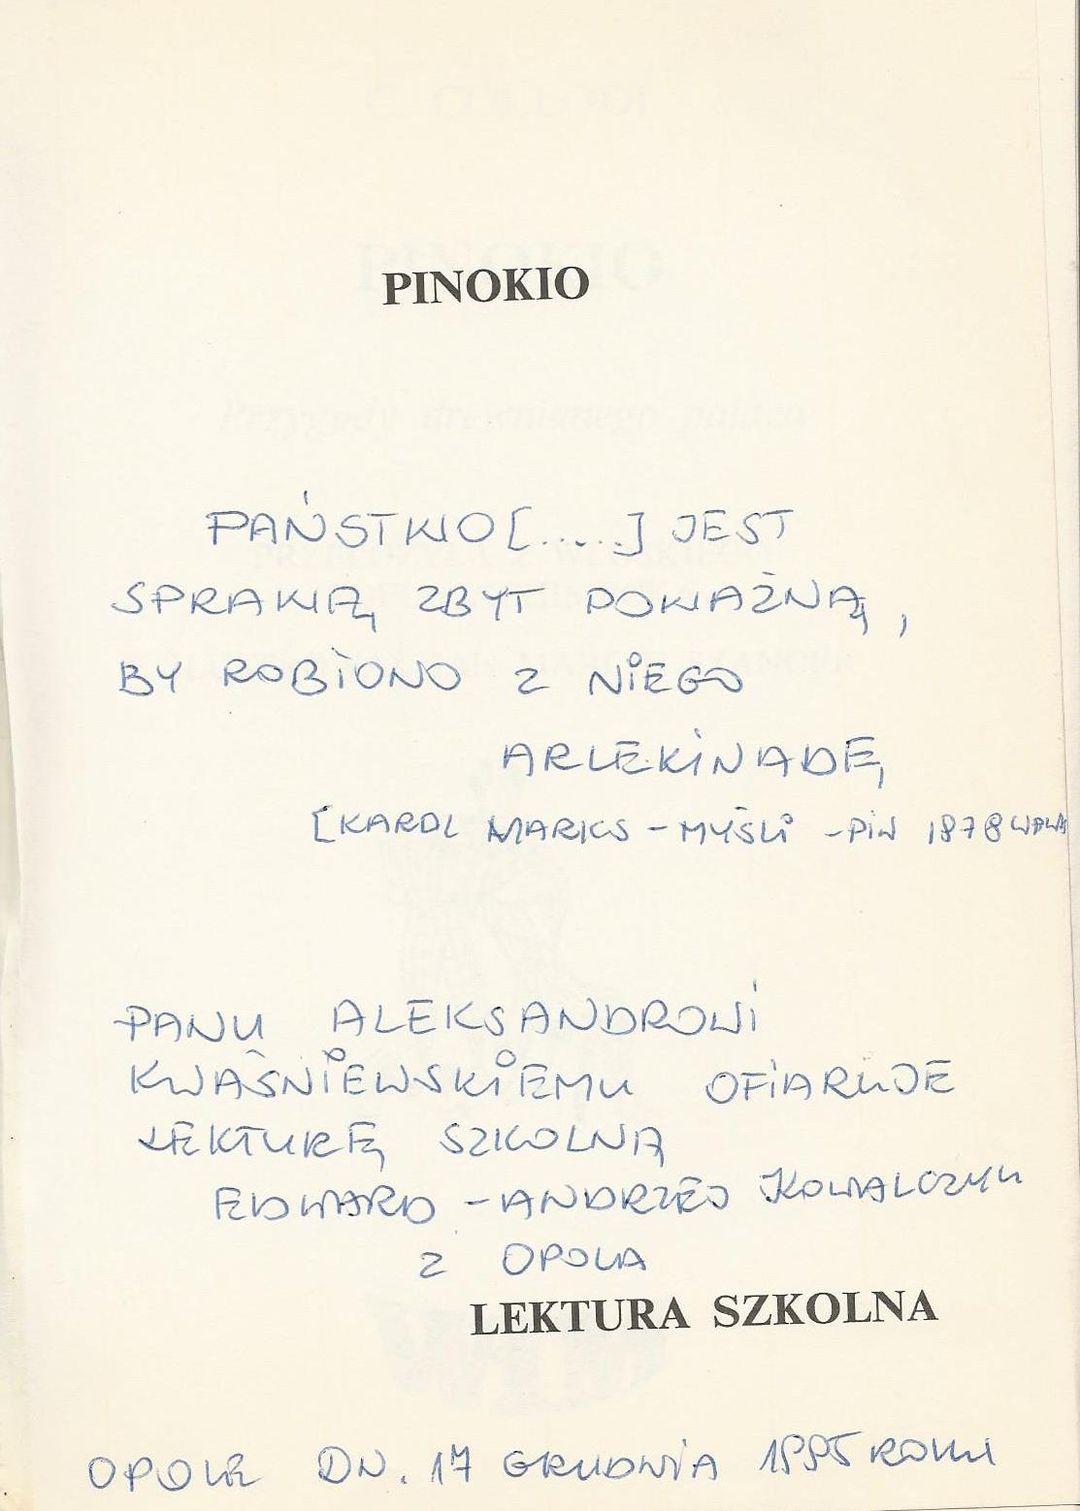 PINOKIO
PAŃSTWO [.....] JEST
SPRAWĄ ZBYT POWAŻNĄ,
BY ROBIONO Z NIEGO
ARLEKINADĘ
[KAROL MARKS - MYŚLI - PIW 1878 WAWA
PANU ALEKSANDROWI
KWAŚNIEWSKIEMU OFIARUJE
LEKTURĘ SZKOLNĄ
EDWARD - ANDRZEJ KOWALCZYK
Z OPOLA
LEKTURA SZKOLNA
OPOLE DN. 17 GRUDNIA 1995 ROKU